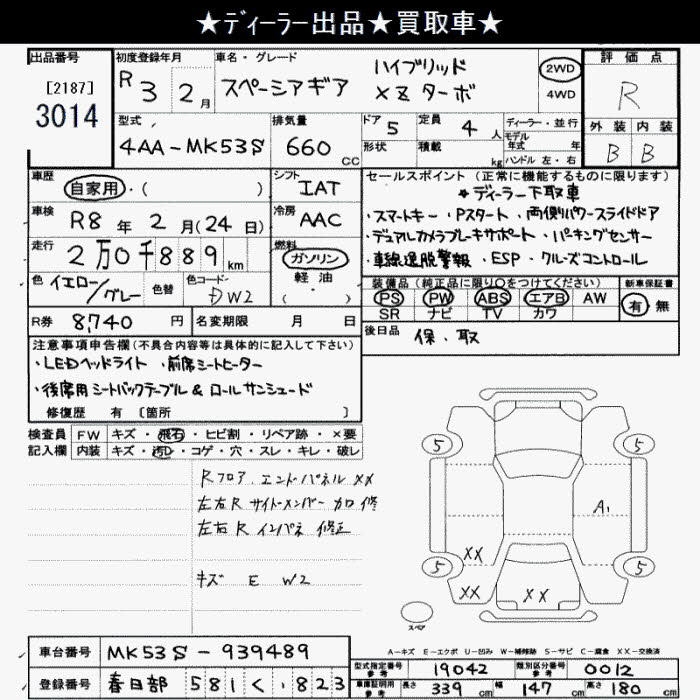 ★ディーラー出品★買取車★
出品番号 初度登録年月 車名・グレード 評価点
[2187] R 3 2月 スペーシアギア ハイブリッド 2WD R
3014 XZターボ 4WD
型式 排気量 ドア 5 定員 4人 ディーラー・並行 外装 内装
4AA-MK53S 660 CC 形状 積載 kg モデル年式 年 B B
ハンドル 左・右
車歴 自家用・( ) シフト IAT セールスポイント(正常に機能するものに限ります)
★ディーラー下取車
車検 R8年2月(24日) 冷房 AAC ・スマートキー・Pスタート・両側パワースライドドア
走行 2万0千889km 燃料 ガソリン ・デュアルカメラブレーキサポート・パーキングセンサー
軽油 ・車線逸脱警報・ESP・クルーズコントロール
・( )
色 イエロー/グレー 色替 色コード DW2 装備品(純正品に限り○をつけてください) 新車保証書
PS PW ABS エアB AW 有 無
SR ナビ TV カワ
R券 8,740円 名変期限 月 日 後日品 保、取
注意事項申告欄(不具合内容等は具体的に記入して下さい)
・LEDヘッドライト・前席シートヒーター
・後席用シートバックテーブル&ロールサンシェード
修復歴 有 〔箇所 〕
検査員 FW キズ・飛石・ヒビ割・リペア跡・×要
記入欄 内装 キズ・汚れ・コゲ・穴・スレ・キレ・破レ
Rフロア、エンドパネル XX
左右Rサイドメンバー 加修
左右Rインパネ 修正
キズ E W2
5 5
A1
XX
5 5
XX XX
スペア
A-キズ E-エクボ U-凹み W-補修跡 S-サビ C-腐食 XX-交換済
車台番号 MK53S-939489
型式指定番号 参考 19042 類別区分番号 参考 0012
登録番号 春日部 581く・823
車庫証明用 参考 長さ 339cm 幅 147cm 高さ 180cm